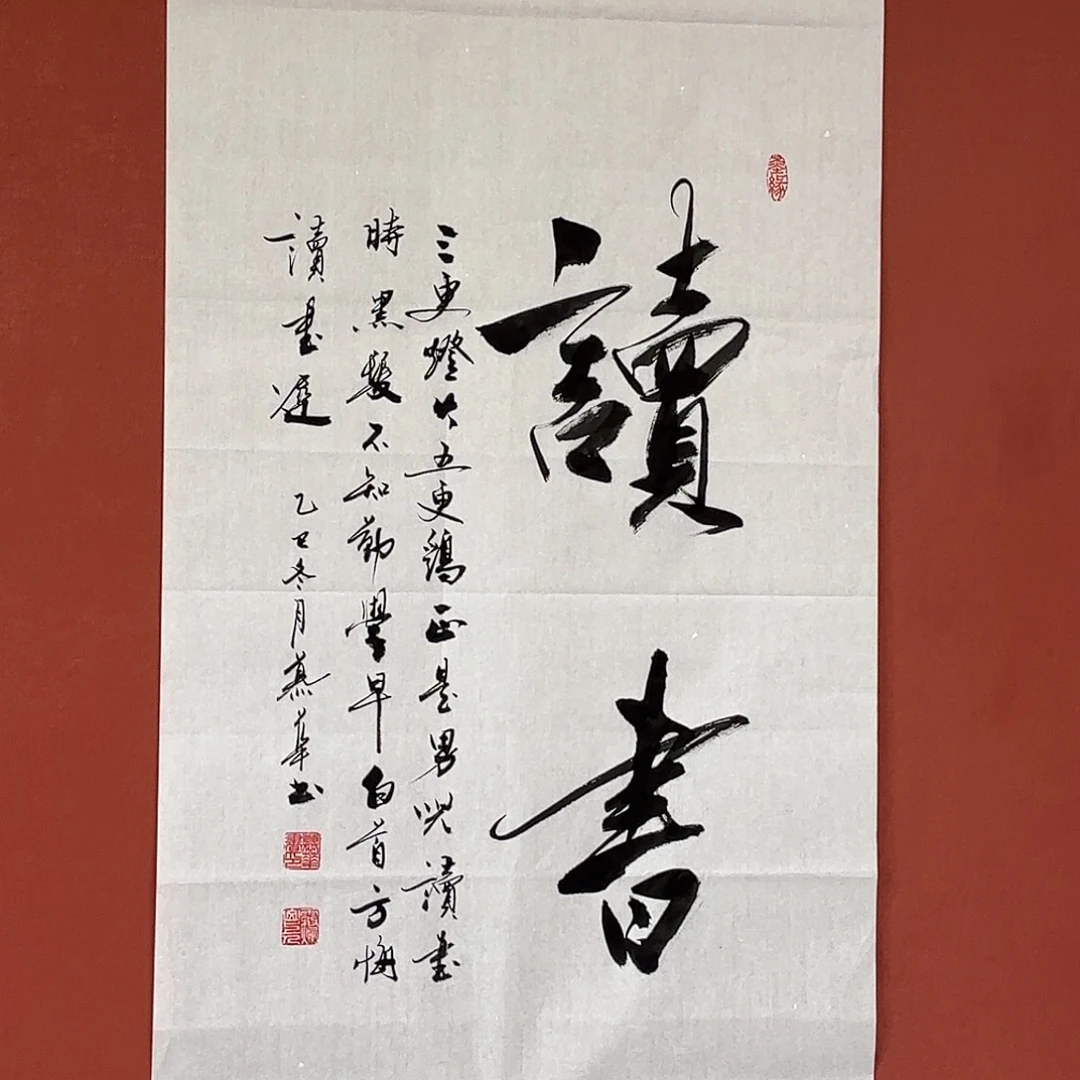 墨缘
讀書
三更燈火五更鷄正是男児讀書
時黑髮不知勤學早白首方悔
讀書遲 乙巳冬月燕華书